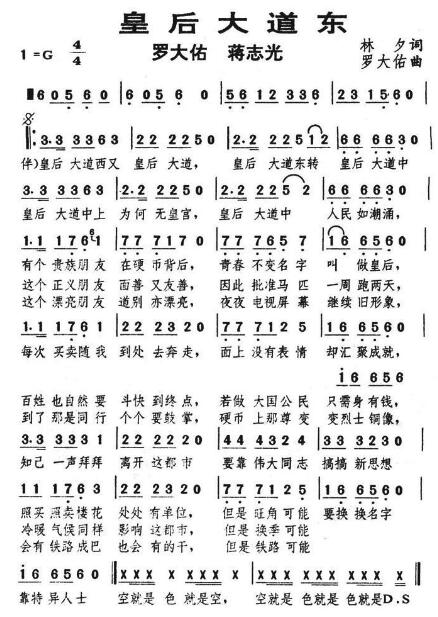 皇后大道东
1=G 4/4 罗大佑 蒋志光 林夕词
罗大佑曲
6 0 5 6 0 | 6 0 5 6 0 | 5 6 12 336 | 23 15 6 0 |
3·3 3363 | 22 2250 | 2·2 22512 | 66 6630 |
伴)皇后 大道西又 皇后 大道, 皇后 大道东转 皇后 大道中
3·3 3363 | 22 22 20 | 2·2 225 2 | 66 6630 |
皇后 大道中上 为何 无皇宫, 皇后 大道中 人民 如潮涌,
1·1 1761 | 77 7170 | 77 7657 | 16 6560 |
有个 贵族朋友 在硬 币背后, 青春 不变名字 叫 做皇后,
这个 正义朋友 面善 又友善, 因此 批准马匹 一周 跑两天,
这个 漂亮朋友 道别 亦漂亮, 夜夜 电视屏幕 继续 旧形象,
1·1 1761 | 77 7170 | 77 7125 | 16 6560 |
每次 买卖随我 到处 去奔走, 面上 没有表情 却汇 聚成就,
16 656
百姓 也自然要 斗快 到终点, 若做 大国公民 只需 身有钱,
到了 那是同行 个个 要鼓掌, 硬币 上那尊变 变烈士 铜像,
3·3 3331 | 22 2220 | 44 4324 | 33 3230
知己 一声拜拜 离开 这都市 要靠 伟大同志 搞搞 新思想
11 1763 | 22 2220 | 77 7125 | 16 0560 |
照买 照卖楼花 处处 有单位, 但是 旺角可能 要换 换名字
冷暖 气候同样 影响 这都市, 但是 换季可能
会有 铁路成巴 也会 有的干, 但是 铁路可能
16 6560 | XXX X XX0 | XXX XXX XXX ||
靠特 异人士 空就是 色 就是空, 空就是 色就是 色就是D.S